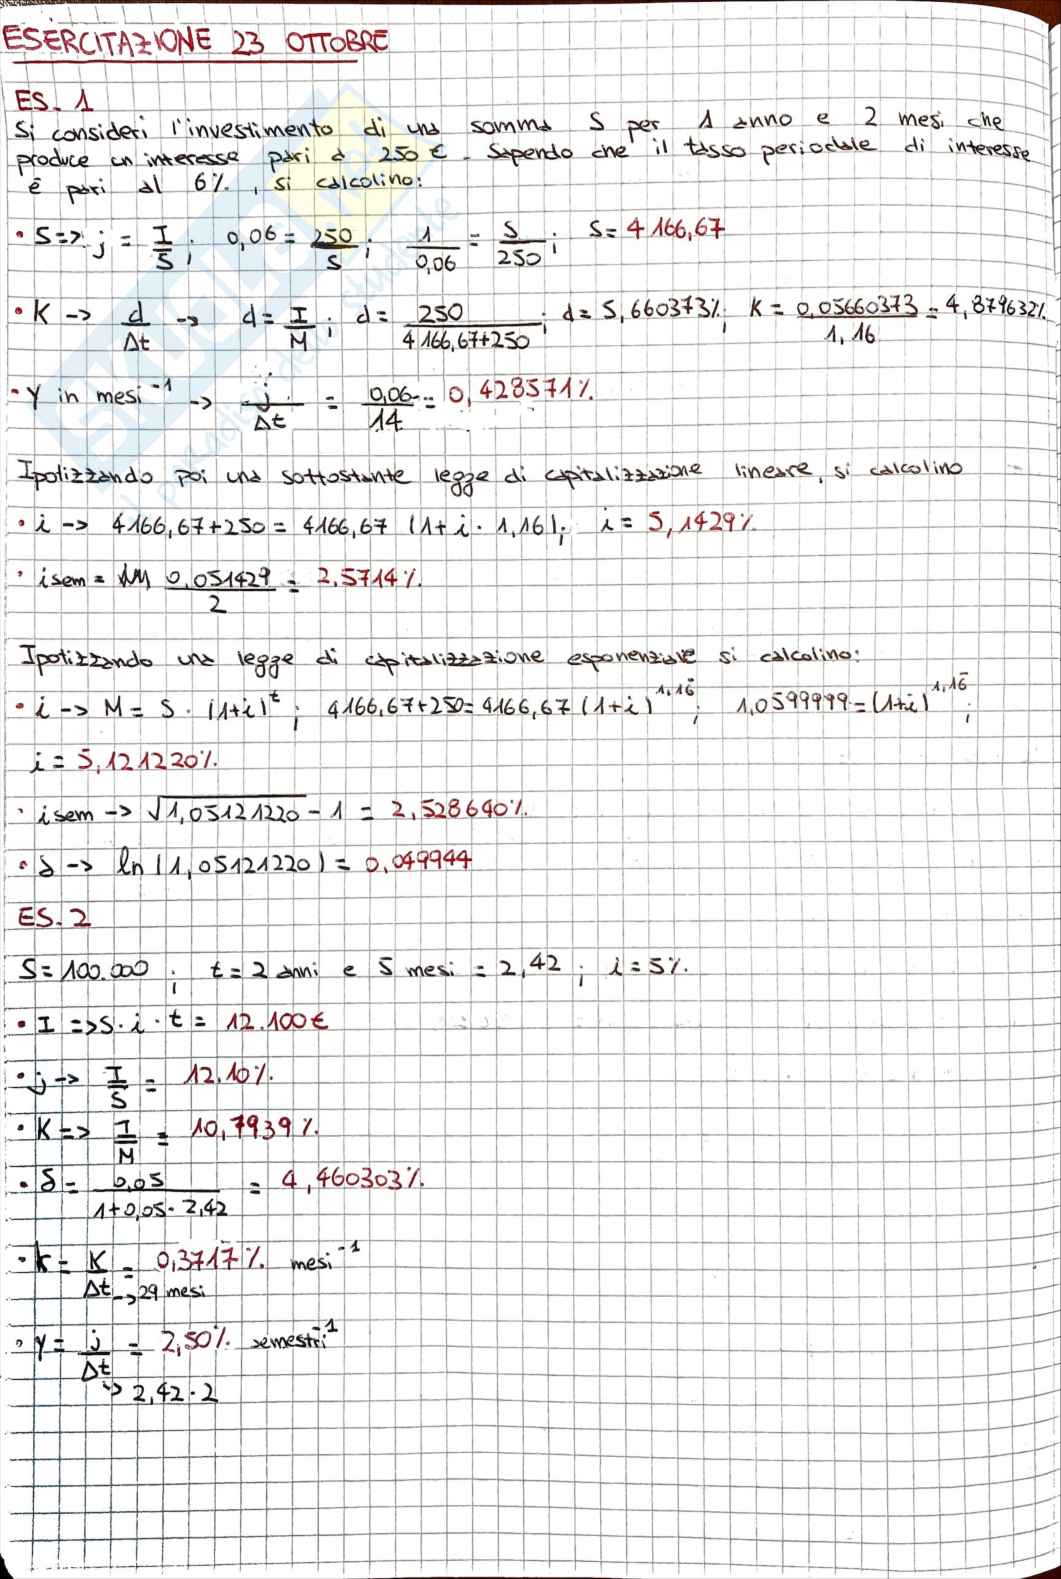 ESERCITAZIONE 23 OTTOBRE
ES. 1
Si consideri l'investimento di una somma S per 1 anno e 2 mesi che
produce un interesse pari a 250 €. Sapendo che il tasso periodale di interesse
è pari al 6%, si calcolino:
• S => j = I/S ; 0,06 = 250/S ; 1/0,06 = S/250 ; S = 4166,67
• K -> d/Δt -> d = I/M ; d = 250/(4166,67+250) ; d = 5,660373% ; K = 0,05660373/1,16 = 4,879632%
• γ in mesi⁻¹ -> j/Δt = 0,06/14 = 0,428571%
Ipotizzando poi una sottostante legge di capitalizzazione lineare, si calcolino
• i -> 4166,67+250 = 4166,67 (1+i · 1,16) ; i = 5,1429%
• isem = 0,051429/2 = 2,5714%
Ipotizzando una legge di capitalizzazione esponenziale si calcolino:
• i -> M = S · (1+i)^t ; 4166,67+250 = 4166,67 (1+i)^1,16̄ ; 1,0599999 = (1+i)^1,16̄ ;
i = 5,121220%
• isem -> √1,05121220 - 1 = 2,528640%
• δ -> ln (1,05121220) = 0,049944
ES. 2
S = 100.000 ; t = 2 anni e 5 mesi = 2,42 ; i = 5%
• I => S · i · t = 12.100 €
• j -> I/S = 12,10%
• K => I/M = 10,7939%
• δ = 0,05/(1+0,05 · 2,42) = 4,460303%
• k = K/Δt = 0,3717% mesi⁻¹
-> 29 mesi
• γ = j/Δt = 2,50% semestri⁻¹
-> 2,42 · 2